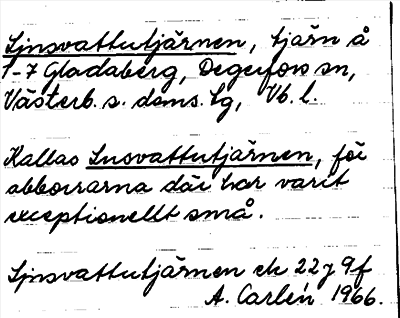 Ljusvattutjärnen, tjärn å
1-7 Gladaberg, Degerfors sn,
Västerb. s. doms. lg, Vb. l.
Kallas Lusvattutjärnen, för
abborrarna där har varit
exceptionellt små.
Ljusvattutjärnen ek 22 J 9f
A. Carlén 1966.